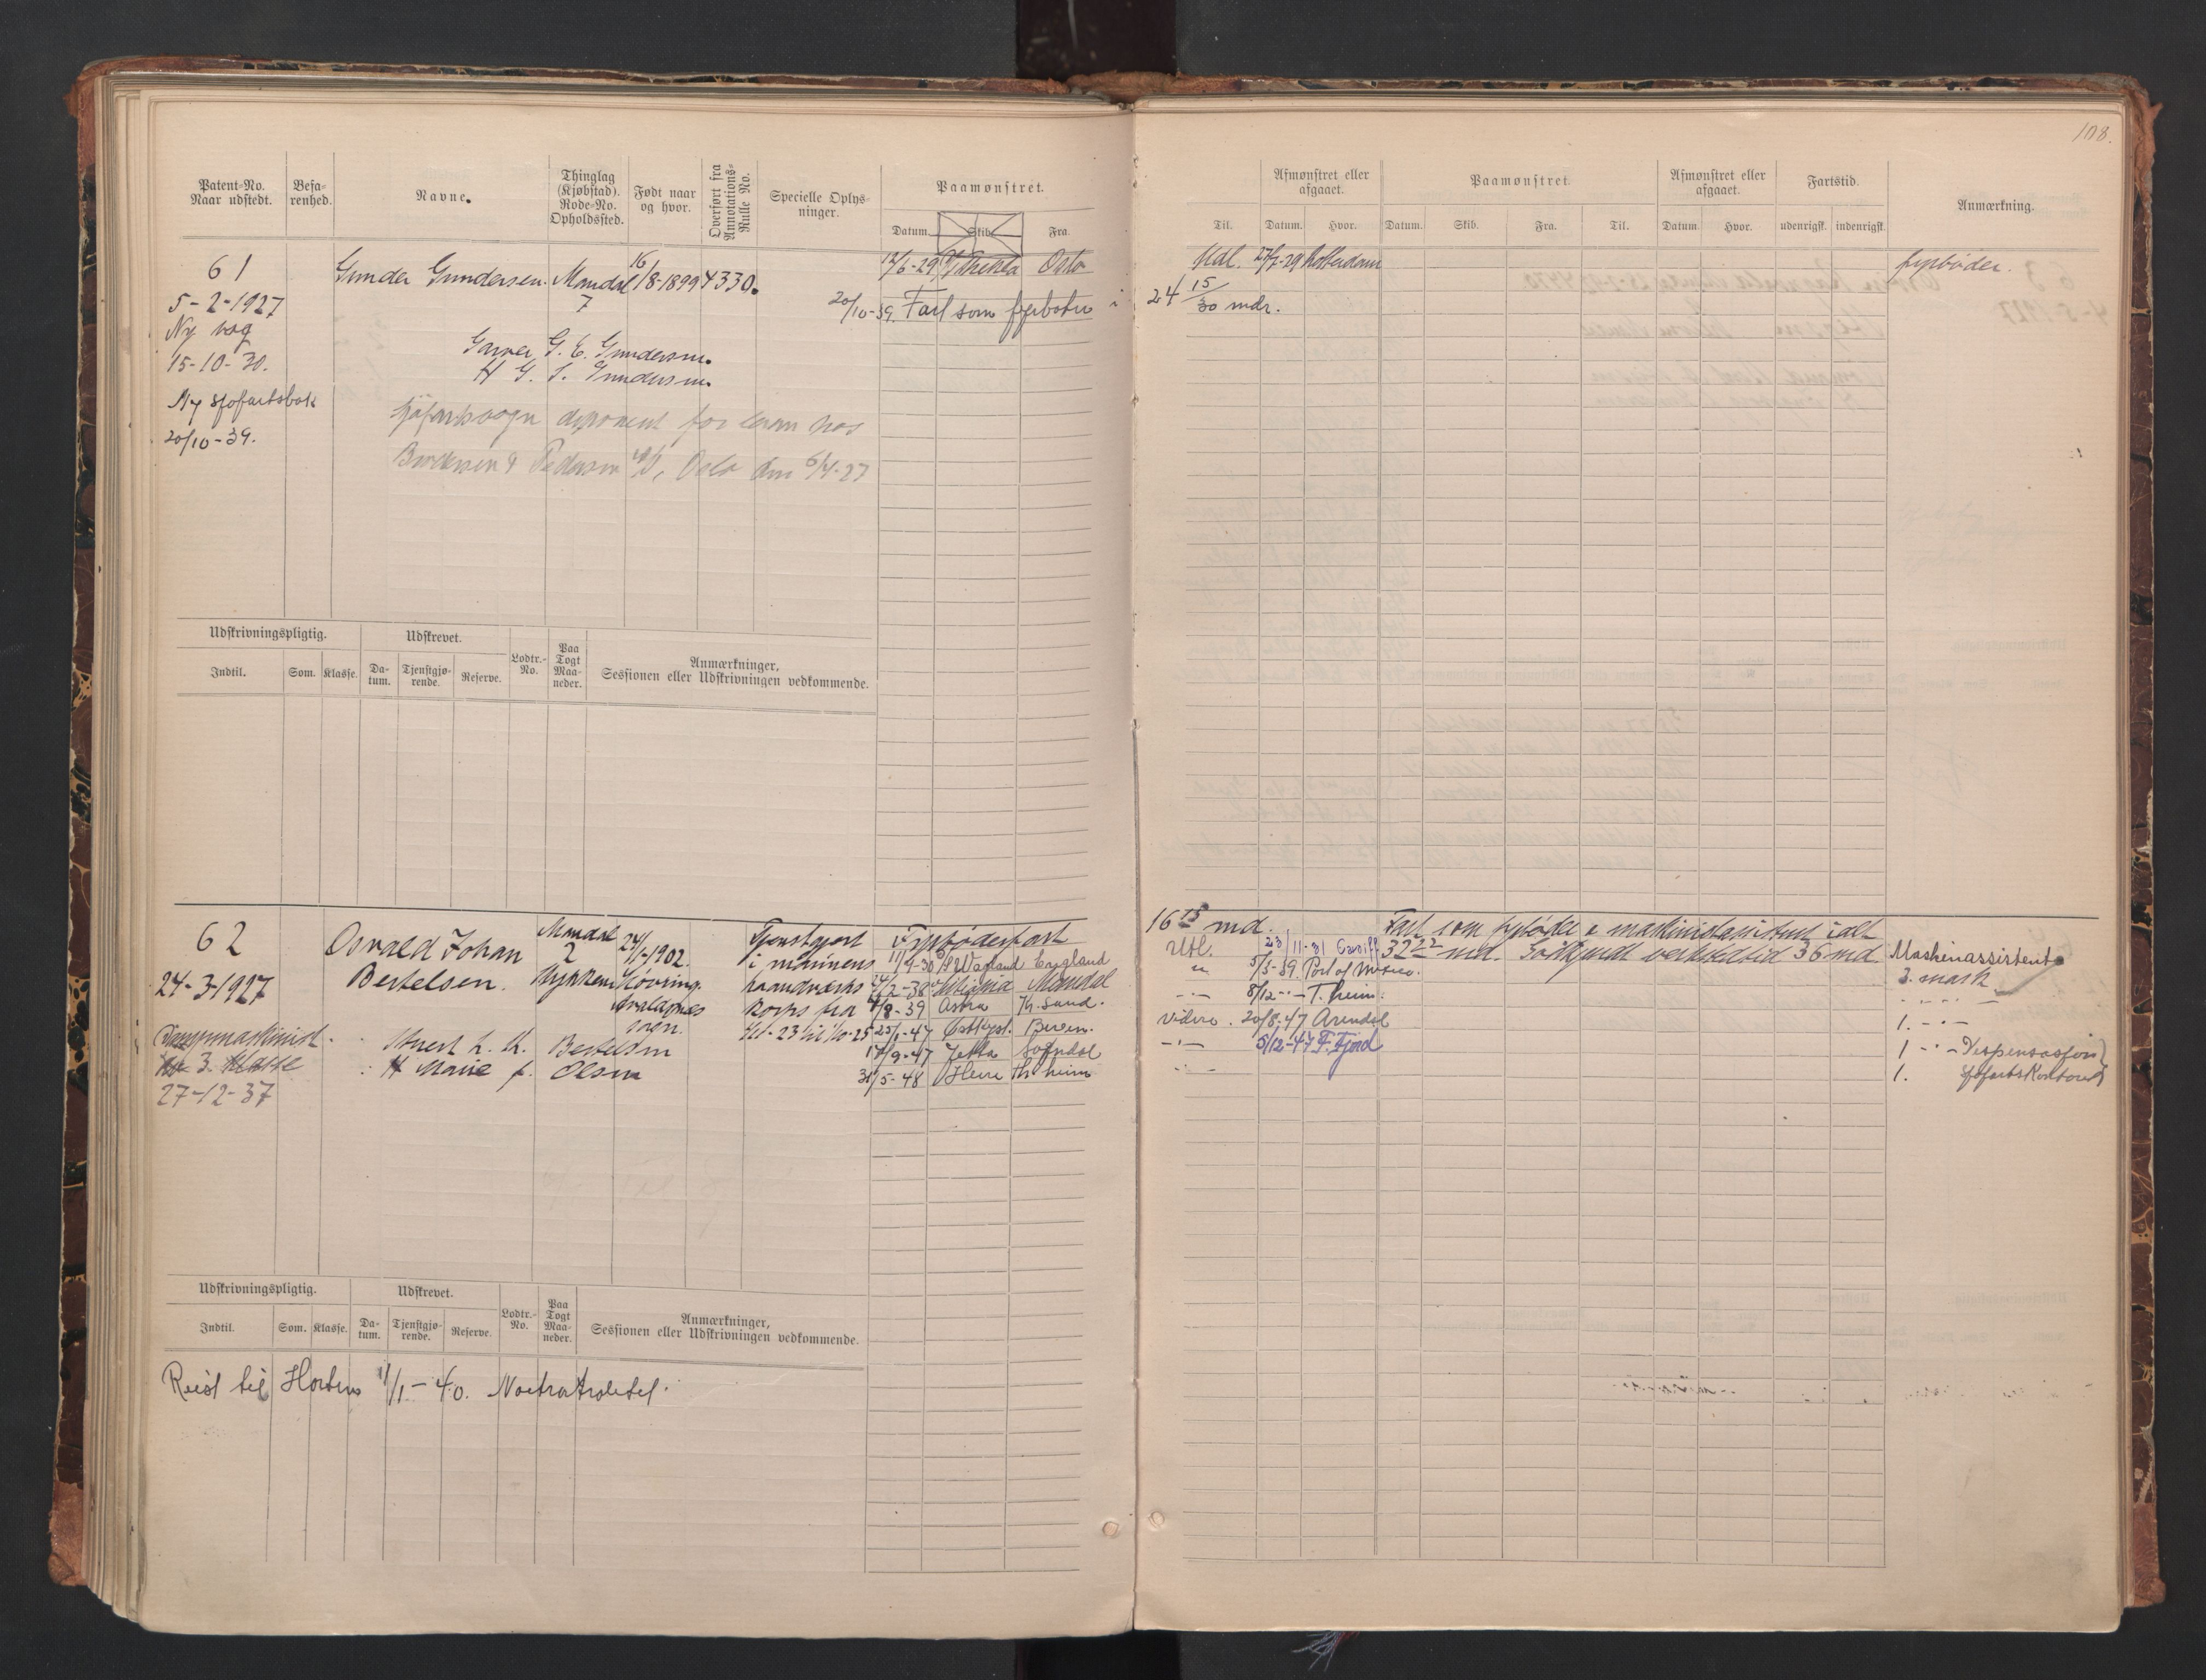 108.
Patent-No. Naar udstedt.
Befarenhed.
Navne.
Thinglag (Kjøbstad). Rode-No. Opholdssted.
Født naar og hvor.
Overført fra Annotations-Rulle No.
Specielle Oplysninger.
Paamønstret.
Datum. Skib. Fra.
Til.
Afmønstret eller afgaaet.
Datum. Hvor.
Paamønstret.
Datum. Skib. Fra. Til.
Afmønstret eller afgaaet.
Datum. Hvor.
Fartstid.
udenrigsk. indenrigsk.
Anmærkning.
61 Gunder Gundersen. Mandal 16/8-1899 4330. 12/6-29 Oslo
Udl. 27/7-29 Rotterdam fyrbøder.
5-2-1927 7 20/10-39. Fart som fyrbøter i 24 15/30 mdr.
Ny bog
15-10-30.
G. E. Gundersen.
H G. Gundersen.
Ny sjøfartsbok
20/10-39.
Pedersen Oslo den 6/4-27
Udskrivningspligtig. Udskrevet.
Lodtr.-No.
Paa Togt Maaneder.
Anmærkninger, Sessionen eller Udskrivningen vedkommende.
Indtil. Som. Klasse. Datum. Tjenstgjørende. Reserve.
62 Osvald Johan Mandal 2 24/1-1902. Tjenstgjort Fyrbøderfart 16 15 md.
Fart som fyrbøder & maskinistassistent ialt
Bertelsen. i marinens 11/9-30 England Utl. 23/11-31 Cardiff 32 22 md. Godkjendt verkstedtid 36 md. Maskinassistent
24-3-1927 haandverks 2-38 Mandal 5/3-39 Port of Mexico. 3. mask.
korps fra 8-39 Astra Kr. Sand. 8/12 - T.heim.
-23 til 1/10-25 25/1-47 Bergen. Videre. 20/8-47 Arendal 1. - -
3. Klasse
27-12-37
Bertelsen
17/9-47 Jekta Sogndal 5/12-47 F. Fjord 1 - - Dispensasjon
H Marie f. Olsen 31/5-48 Tr. heim 1. Sjøfartskontoret
Udskrivningspligtig. Udskrevet.
Lodtr.-No.
Paa Togt Maaneder.
Anmærkninger, Sessionen eller Udskrivningen vedkommende.
Indtil. Som. Klasse. Datum. Tjenstgjørende. Reserve.
Reist til Horten 11/1-40.